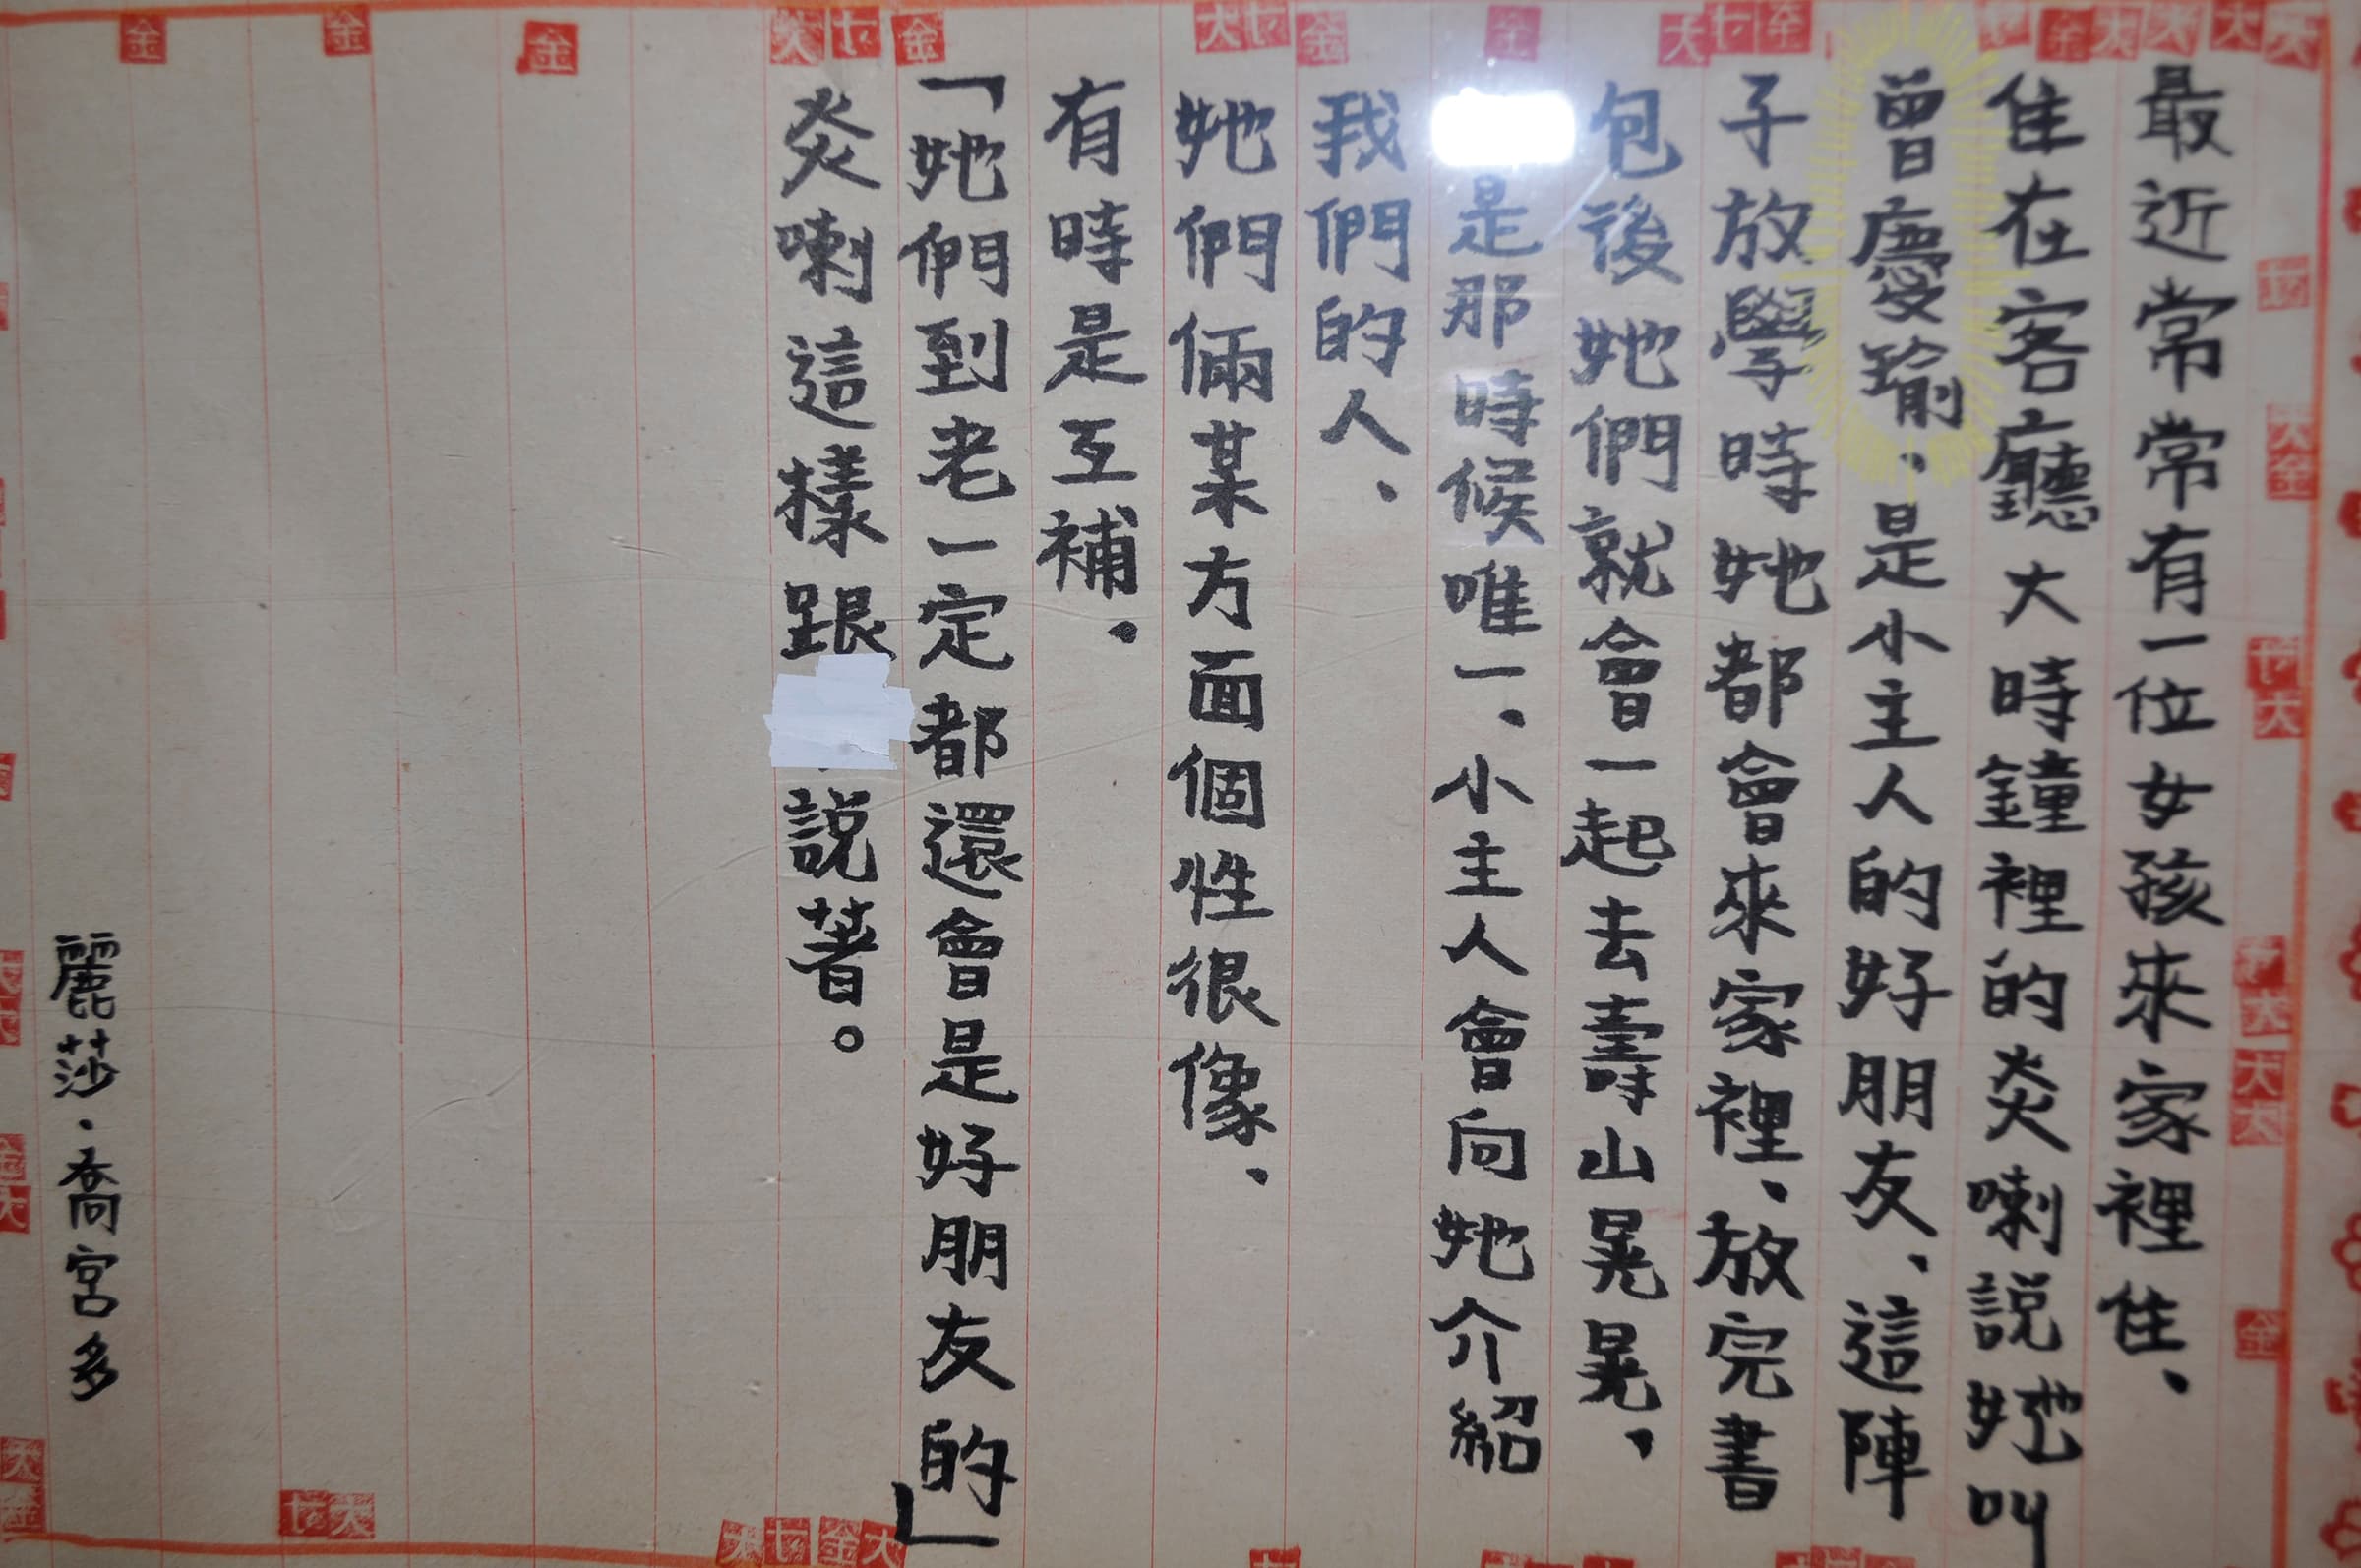 最近常常有一位女孩來家裡住、
住在客廳大時鐘裡的炎喇說她叫
曾慶瑜、是小主人的好朋友、這陣
子放學時她都會來家裡、放完書
包後她們就會一起去壽山晃晃、
是那時候唯一、小主人會向她介紹
我們的人、
她們倆某方面個性很像、
有時是互補、
「她們到老一定都還會是好朋友的」
炎喇這樣跟說著。
麗莎·喬宮多